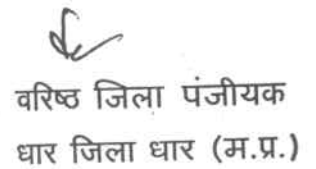 वरिष्ठ जिला पंजीयक
धार जिला धार (म.प्र.)